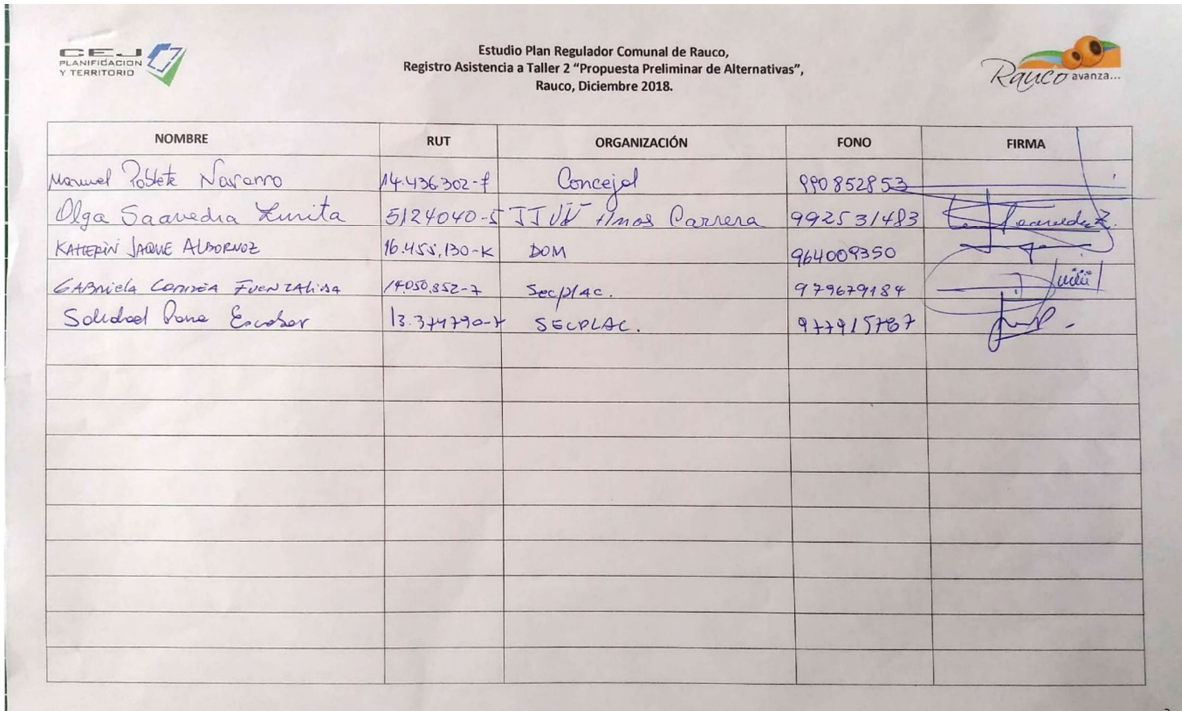 CEJ
PLANIFICACION
Y TERRITORIO
Estudio Plan Regulador Comunal de Rauco,
Registro Asistencia a Taller 2 “Propuesta Preliminar de Alternativas”,
Rauco, Diciembre 2018.
Rauco avanza...
NOMBRE RUT ORGANIZACIÓN FONO FIRMA
Manuel Poblete Navarro 14.436302-7 Concejal 990852853
Olga Saavedra Zurita 5124040-5 JJVV Hnos Carrera 992531483
KATHERIN JAQUE ALBORNOZ 16.455.130-K DOM 964009350
GABRIELA CORREA FUENZALIDA 14050.852-7 Secplac. 979679184
Soledad Escobar 13.374790-7 SECPLAC. 977915787